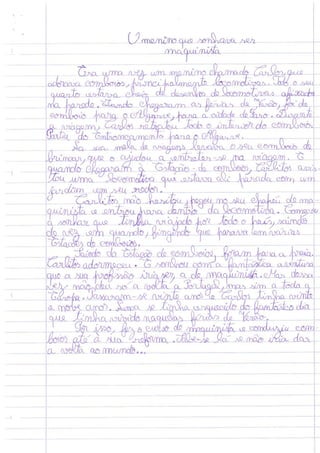 O menino que sonhava ser
maquinista
Era uma vez um menino chamado Carlos, que
adorava comboios, principalmente locomotivas. Todo o seu
quarto estava cheio de desenhos de locomotivas afixados
na parede. Quando chegaram as férias de Verão, foi de
comboio para o Algarve, para a cidade de Faro. Durante
a viagem, Carlos retratou todo o interior do comboio.
Partiu do Entroncamento para o Algarve.
Na sua mala de viagens levava o seu comboio de
brincar, que o ajudou a entreter-se na viagem. E
quando chegaram à Estação de comboios, Carlitos avis-
tou uma locomotiva que estava ali parada com um
jardim em seu redor.
Carlitos não hesitou, pegou no seu chapéu de ma-
quinista e entrou para dentro da locomotiva. Começou
a sonhar que tinha viajado por todo o país, saindo
de vez em quando, fingindo que parava em várias
Estações de comboios.
Saindo da Estação de comboios, foram para a praia.
Carlitos adormeceu. E sonhou com a fantástica aventura
que a sua profissão iria ser a de maquinista. Mas dessa
vez não deu só a volta a Portugal, mas sim a toda a
Europa. Passaram-se vinte anos e Carlos tinha vinte
e nove anos. Nunca se tinha esquecido do fantástico dia
que tinha vivido naquelas férias de Verão.
Por isso, fez o curso de maquinista e conduziu com-
boios até à sua reforma. Sabe-se lá se não irá dar
a volta ao mundo...